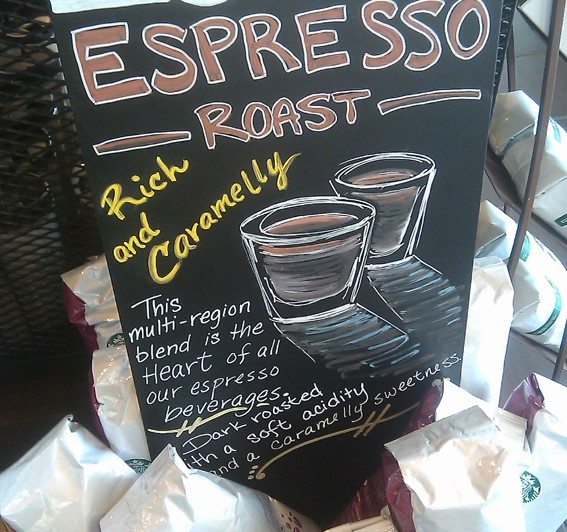 ESPRESSO
ROAST
Rich
and
Caramelly
This
multi-region
blend is the
Heart of all
our espresso
beverages.
Dark roasted
with a soft acidity
and a caramelly sweetness.